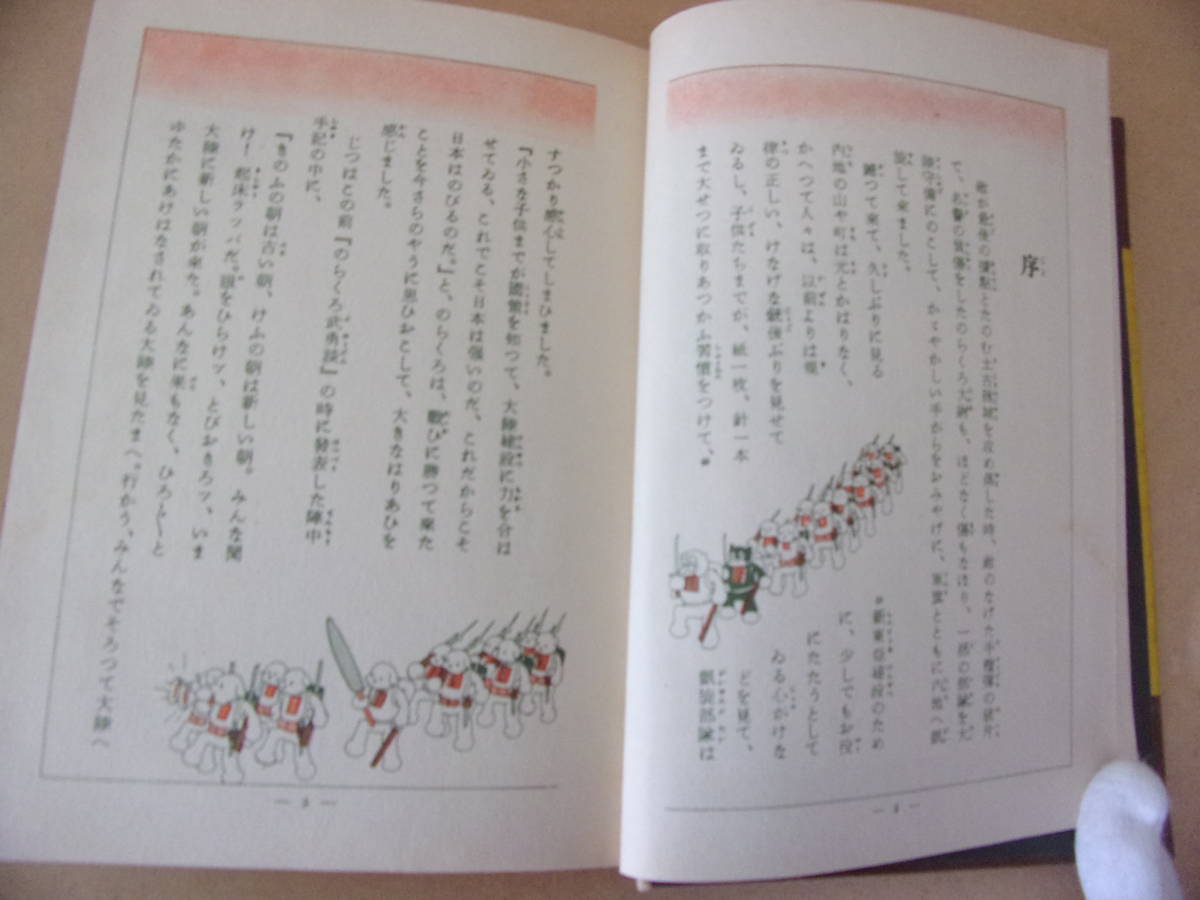 序
敵が最後の據點とたのむ土古抜城を攻め落した時、敵のなげた手榴彈の破片
で、名譽の負傷をしたのらくろ大尉も、ほどなく傷もなほり、一部の部隊を大
陸守備にのこして、かゞやかしい手がらをおみやげに、軍雲とともに內地へ凱
旋して來ました。
歸つて來て、久しぶりに見る
內地の山や町は元とかはりなく、
かへつて人々は、以前よりは規
律の正しい、けなげな銃後ぶりを見せて
ゐるし、子供たちまでが、紙一枚、針一本
まで大せつに取りあつかふ習慣をつけて、
新東亞建設のため
に、少しでもお役
にたたうとして
ゐる心がけな
どを見て、
凱旋部隊は
— 4 —
すつかり感心してしまひました。
『小さな子供までが國策を知つて、大陸建設に力を合は
せてゐる、これでこそ日本は强いのだ、これだからこそ
日本はのびるのだ。』と、のらくろは、戰ひに勝つて來た
ことを今さらのやうに思ひおこして、大きなはりあひを
感じました。
じつはこの前『のらくろ武勇談』の時に發表した陣中
手記の中に、
『きのふの朝は古い朝、けふの朝は新しい朝。みんな聞
け！起床ラッパだ。眼をひらけッ、とびおきろッ、いま
大陸に新しい朝が來た。あんなに果もなく、ひろ〴〵と
ゆたかにあけはなされてゐる大陸を見たまへ。行かう、みんなでそろつて大陸へ
— 5 —